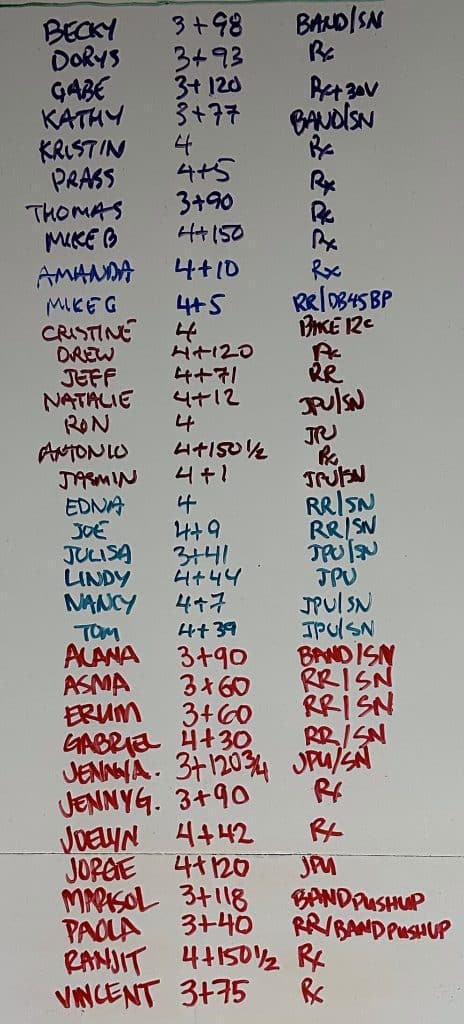 BECKY 3+98 BAND/SN
DORYS 3+93 Rx
GABE 3+120 Rx+30V
KATHY 3+77 BAND/SN
KRISTIN 4 Rx
PRASS 4+5 Rx
THOMAS 3+90 Rx
MIKE B 4+150 Rx
AMANDA 4+10 Rx
MIKE G 4+5 RR/DB45BP
CRISTINE 4 BIKE 12C
DREW 4+120 Rx
JEFF 4+71 RR
NATALIE 4+12 JPU/SN
RON 4 JPU
ANTONIO 4+150 1/2 Rx
JASMIN 4+1 JPU/SN
EDNA 4 RR/SN
JOE 4+9 RR/SN
JULISA 3+41 JPU/SN
LINDY 4+44 JPU
NANCY 4+7 JPU/SN
TOM 4+39 JPU/SN
ALANA 3+90 BAND/SN
ASMA 3+60 RR/SN
ERUM 3+60 RR/SN
GABRIEL 4+30 RR/SN
JENNY A. 3+120 3/4 JPU/SN
JENNY G. 3+90 Rx
JOELYN 4+42 Rx
JORGE 4+120 JPU
MARISOL 3+118 BAND PUSHUP
PAOLA 3+40 RR/BAND PUSHUP
RANJIT 4+150 1/2 Rx
VINCENT 3+75 Rx